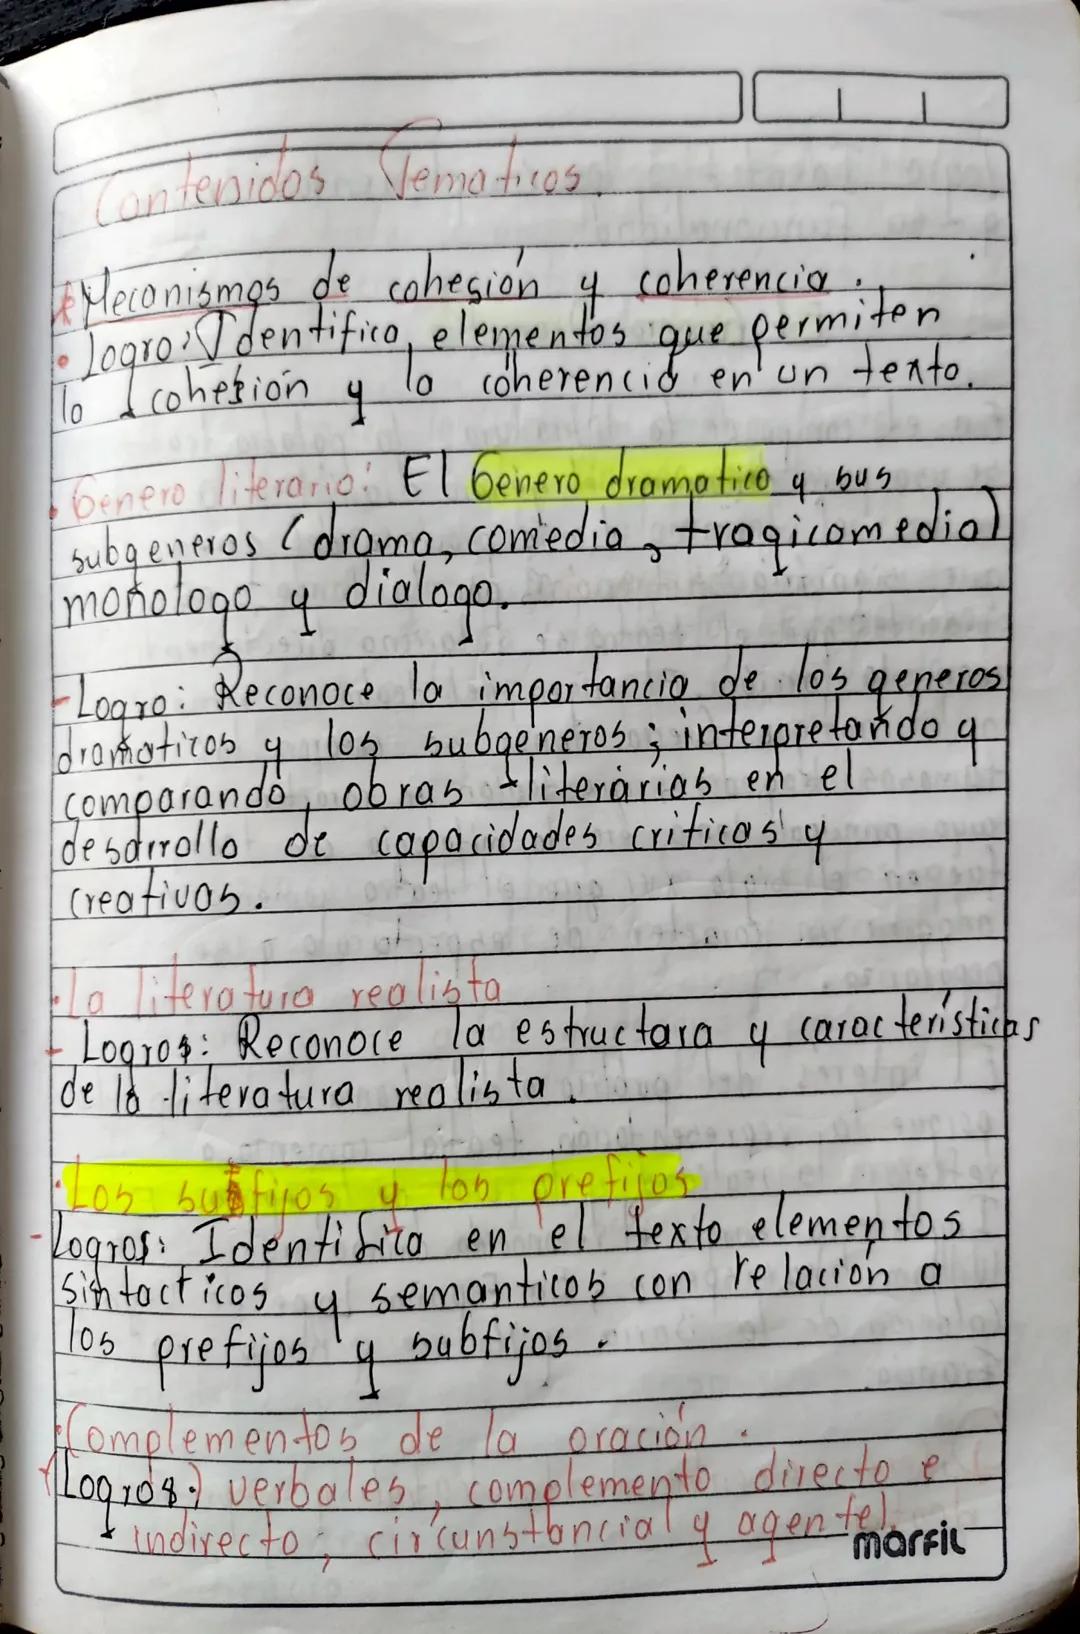 Contenidos Tematicos.
* Mecanismos de cohesión y coherencia.
• Logro: Identifica elementos que permiten
la cohesión y la coherencia en un texto.
• Genero literario: El Genero dramatico y sus
subgeneros (drama, comedia, tragicomedia)
monologo y dialogo.
- Logro: Reconoce la importancia de los generos
dramaticos y los subgeneros; interpretando y
comparando, obras literarias en el
desarrollo de capacidades criticas y
creativas.
• La literatura realista
- Logros: Reconoce la estructura y características
de la literatura realista.
• Los subfijos y los prefijos
- Logros: Identifica en el texto elementos
sintacticos y semanticos con relación a
los prefijos y subfijos.
• Complementos de la oración.
(Logros:) verbales, complemento directo e
indirecto, circunstancial y agente).
marfil